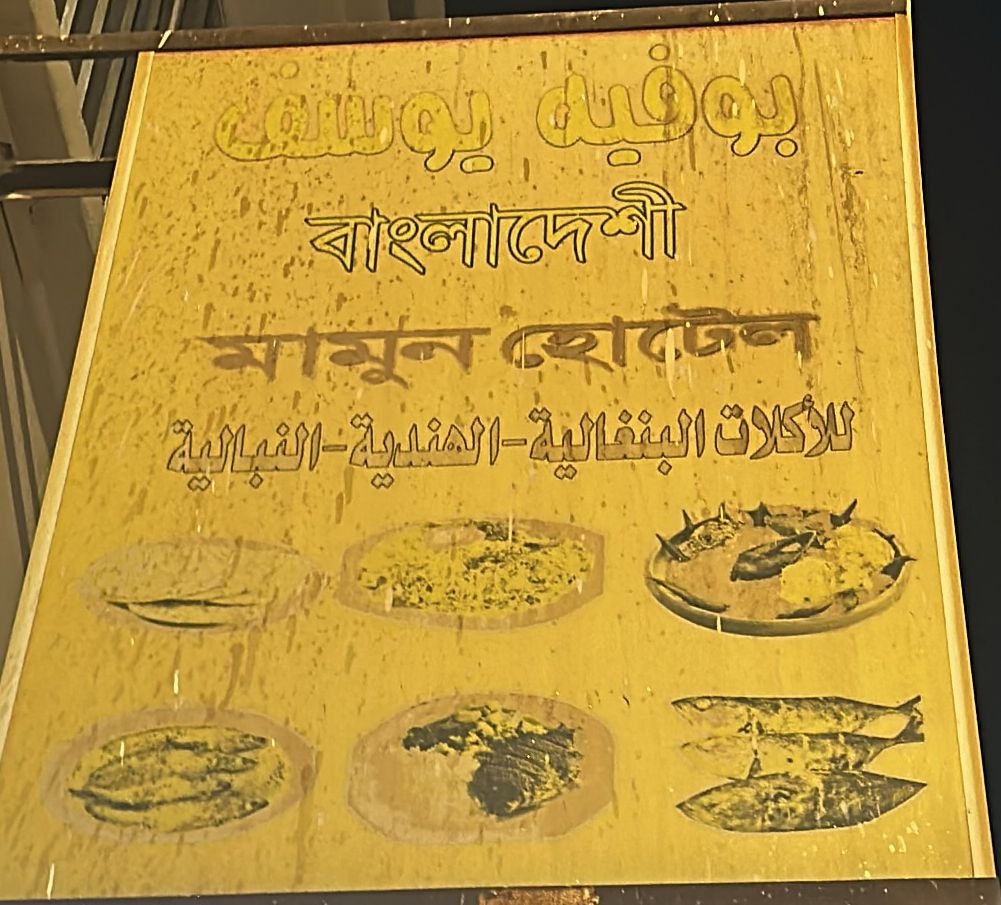 بوفيه يوسف
বাংলাদেশী
মামুন হোটেল
للأكلات البنغالية-الهندية-النبالية